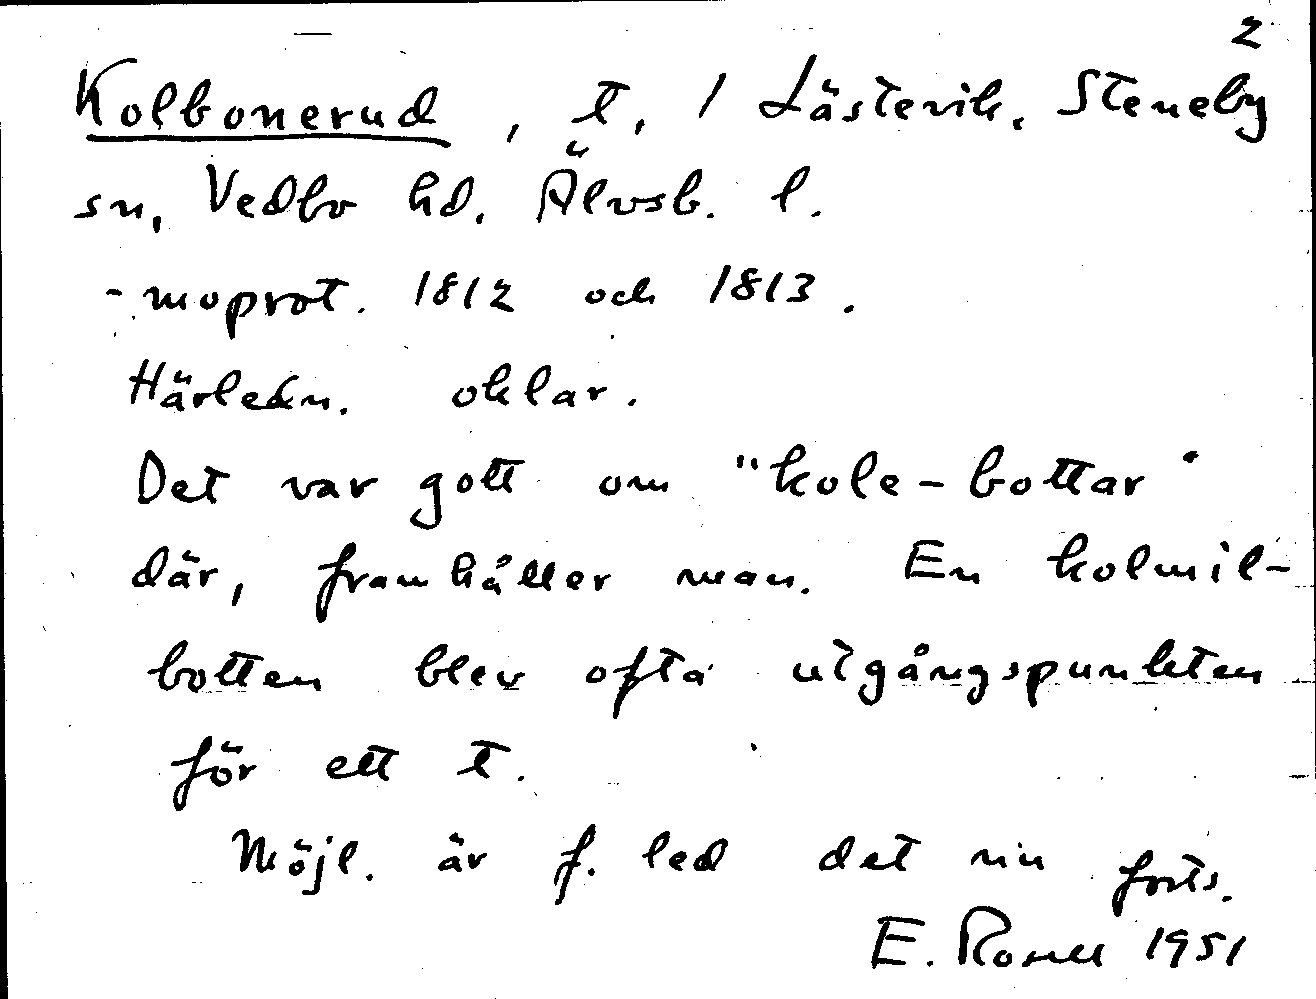 2
Kolbonerud, t, / Lästevik, Steneby
sn, Vedbo hd. Älvsb. l.
- moprot. 1812 och 1813.
Härledn. oklar.
Det var gott om "kole-bottar"
där, framhåller man. En kolmil-
botten blev ofta utgångspunkten
för ett t.
Möjl. är f. led det nu forts.
E. Rosell 1951